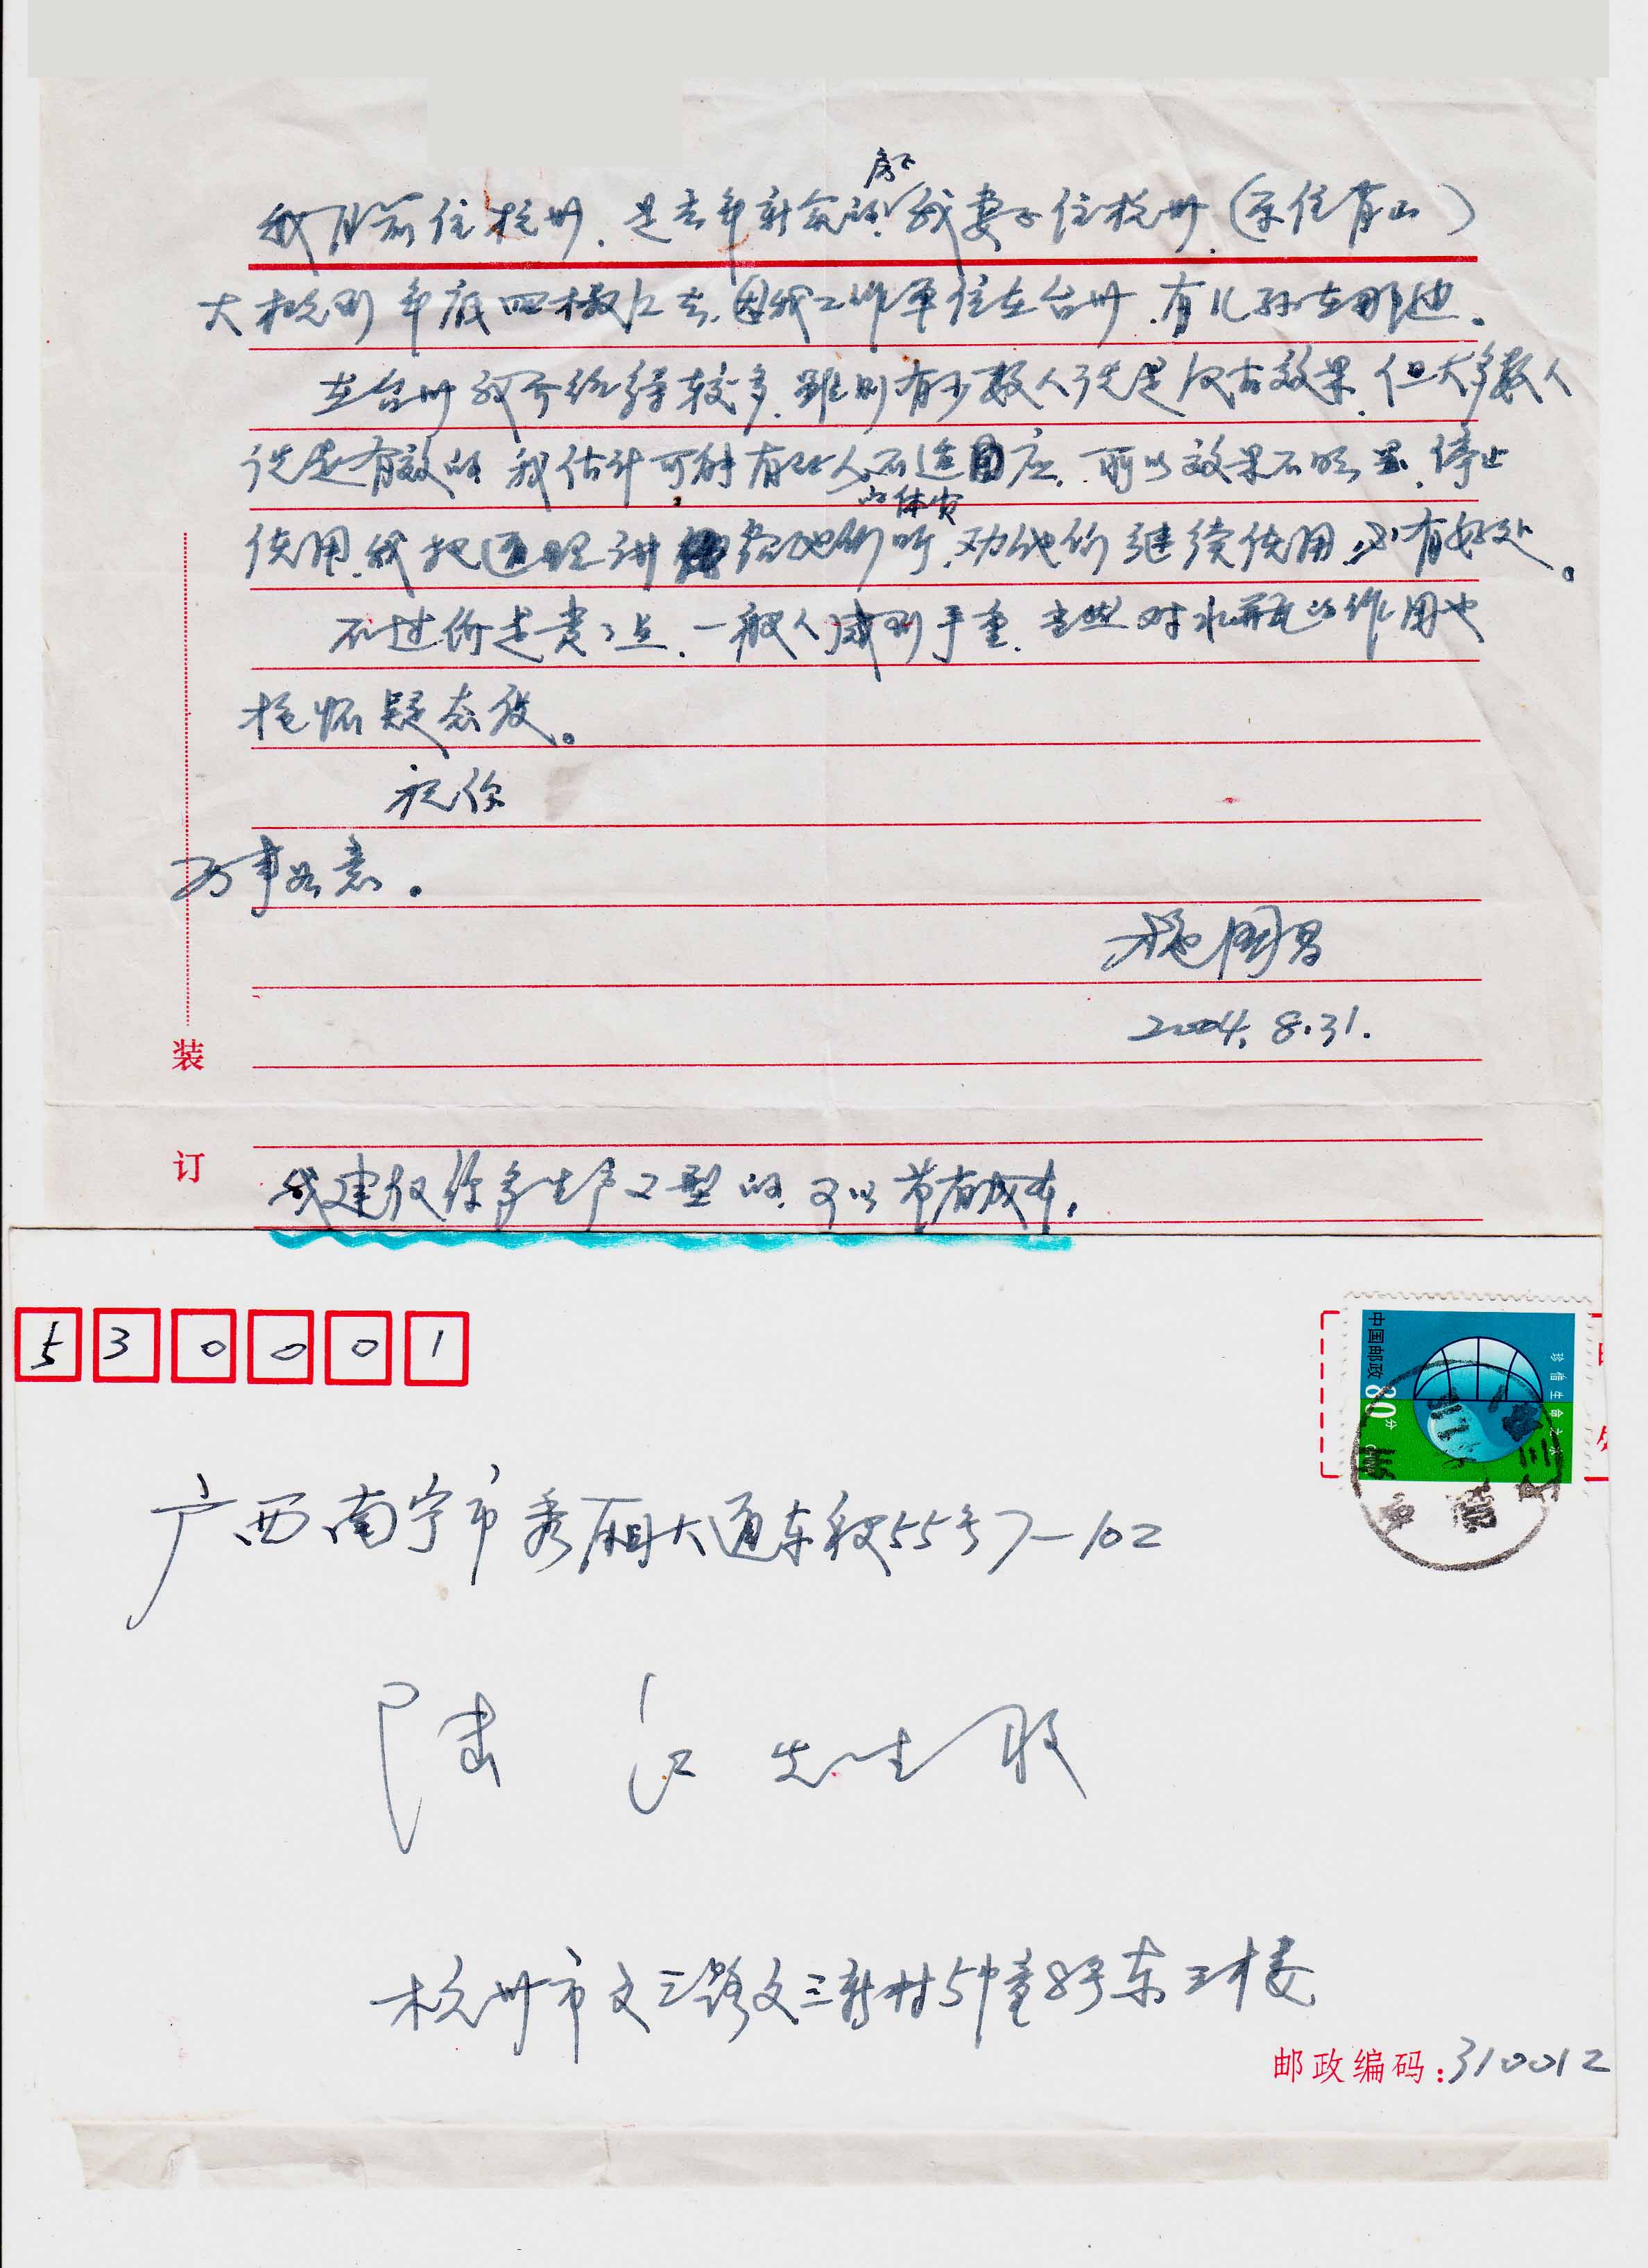 我目前住杭州、是去年新分的房子我妻子住杭州、(原住青山)
大概到年底回椒江去、因我工作单位在台州、有儿孙在那边。
在台州 较多、虽则有少数人说是没有效果、但大多数人
说是有效的 我估计可能有些人不适应、所以效果不明显、停止
使用、我把道理 讲给他们听、劝他们继续使用、必有好处。
不过价是贵了点、一般人感到手重、当然对水瓶的作用也
抱怀疑态度。
祝你
万事如意。
施国昌
2004.8.31.
装
订
我建议你多生产2型的、可以节省成本。
530001
中国邮政 80分
珍惜生命之水
广西南宁市秀厢大道东段55号7-102
陆江先生收
杭州市文三路文三新村5幢8号东三楼
邮政编码:310012